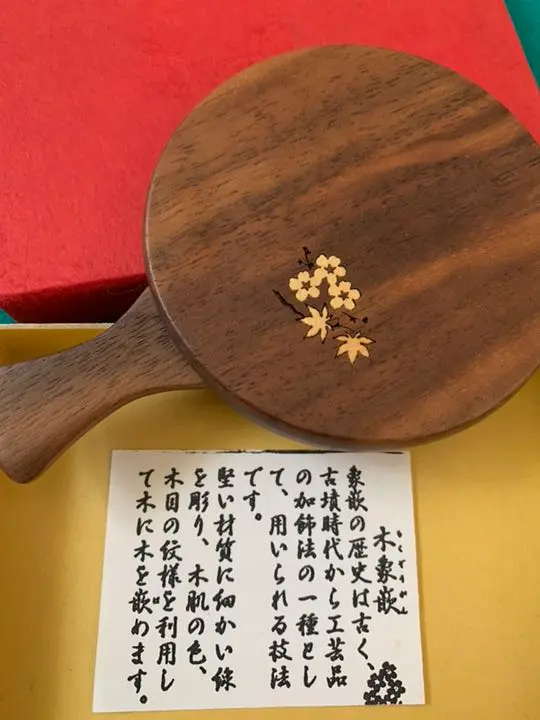 木象嵌
もくぞうがん
象嵌の歴史は古く、
古墳時代から工芸品
の加飾法の一種とし
て、用いられる技法
です。
堅い材質に細かい線
を彫り、木肌の色、
木目の紋様を利用し
て木に木を嵌めます。